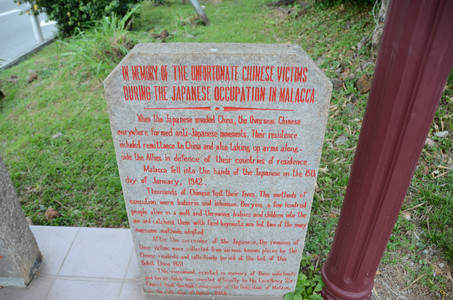 IN MEMORY OF THE UNFORTUNATE CHINESE VICTIMS
DURING THE JAPANESE OCCUPATION IN MALACCA
When the Japanese invaded China, the Overseas Chinese
everywhere formed anti-Japanese movements. Their
included remittance to China and also taking up arms along-
side the Allies in defence of their countries of residence.
Malacca fell into the hands of the Japanese on the 15th
day of January, 1942.
Thousands of Chinese lost their lives. The methods of
execution were barbaric and inhuman. Burying a few hundred
people alive in a well and throwing babies and children into the
air and catching them with fixed bayonets are but two of the many
gruesome methods adopted.
After the surrender of the Japanese, the remains of
these victims were collected from various known places by the
Chinese residents and collectively buried at the foot of this
Bukit China Hill.
This monument erected in memory of these